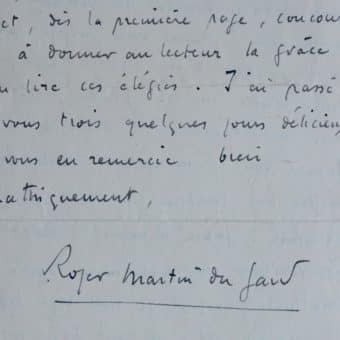 et, dès la première page, concou
à donner au lecteur la grâce
lire ces élégies. J'ai passé
vous trois quelques jours délicieu
vous en remercie bien
athiquement,
Roger Martin du Gard